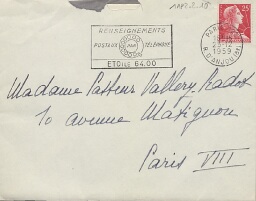 RENSEIGNEMENTS
POSTAUX PAR TÉLÉPHONE
ETOILE 64.00
PARIS
1959
R. D'ANJOU (8)
25
Madame Pasteur Vallery Radot
10 avenue Matignon
Paris VIII